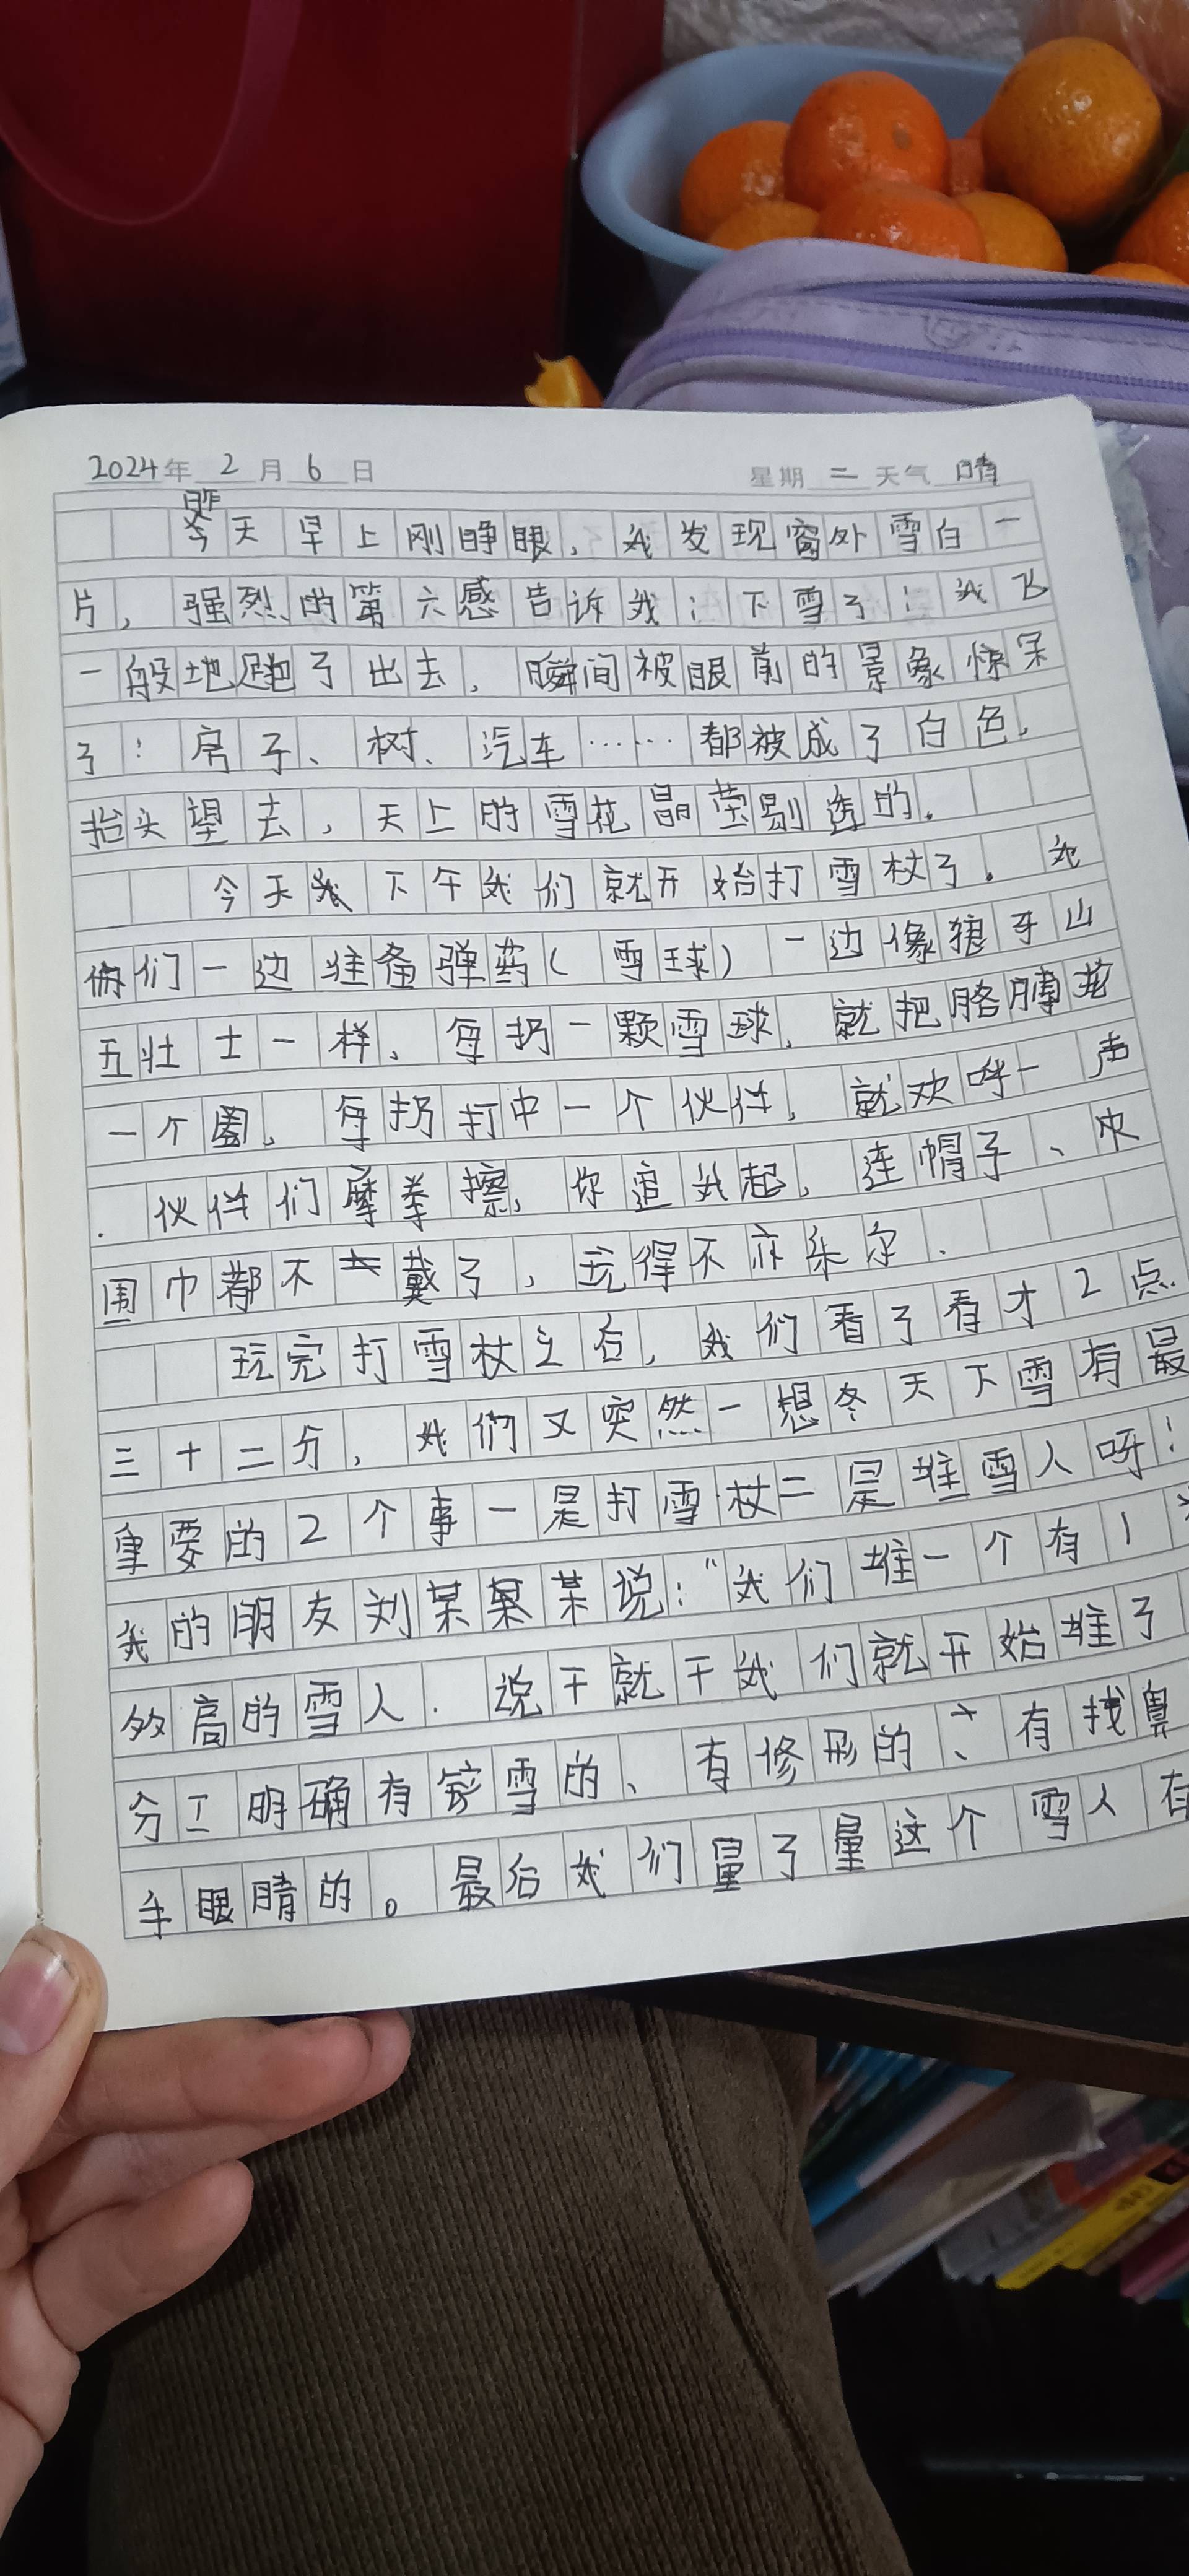 2024年 2 月 6 日 星期 二 天气 晴
昨
今天早上刚睁眼，我发现窗外雪白一
片，强烈的第六感告诉我：下雪了！我飞
一般地跑了出去，瞬间被眼前的景象惊呆
了！房子、树、汽车……都被成了白色，
抬头望去，天上的雪花晶莹剔透的。
今天我下午我们就开始打雪杖了。我
俩们一边准备弹药（雪球）一边像狼牙山
五壮士一样，每扔一颗雪球，就把胳膊抡
一个圈，每扔打中一个伙伴，就欢呼一声
．伙伴们摩拳擦，你追我起，连帽子、
围巾都不戴了，玩得不亦乐尔．
玩完打雪杖之后，我们看了看才2点
三十二分，我们又突然一想冬天下雪有最
重要的2个事一是打雪杖二是堆雪人呀！
我的朋友刘某某某说：“我们堆一个有1
高的雪人．说干就干我们就开始堆了
分工明确有铲雪的、有修形的、有找鼻
手眼睛的。最后我们量了量这个雪人有